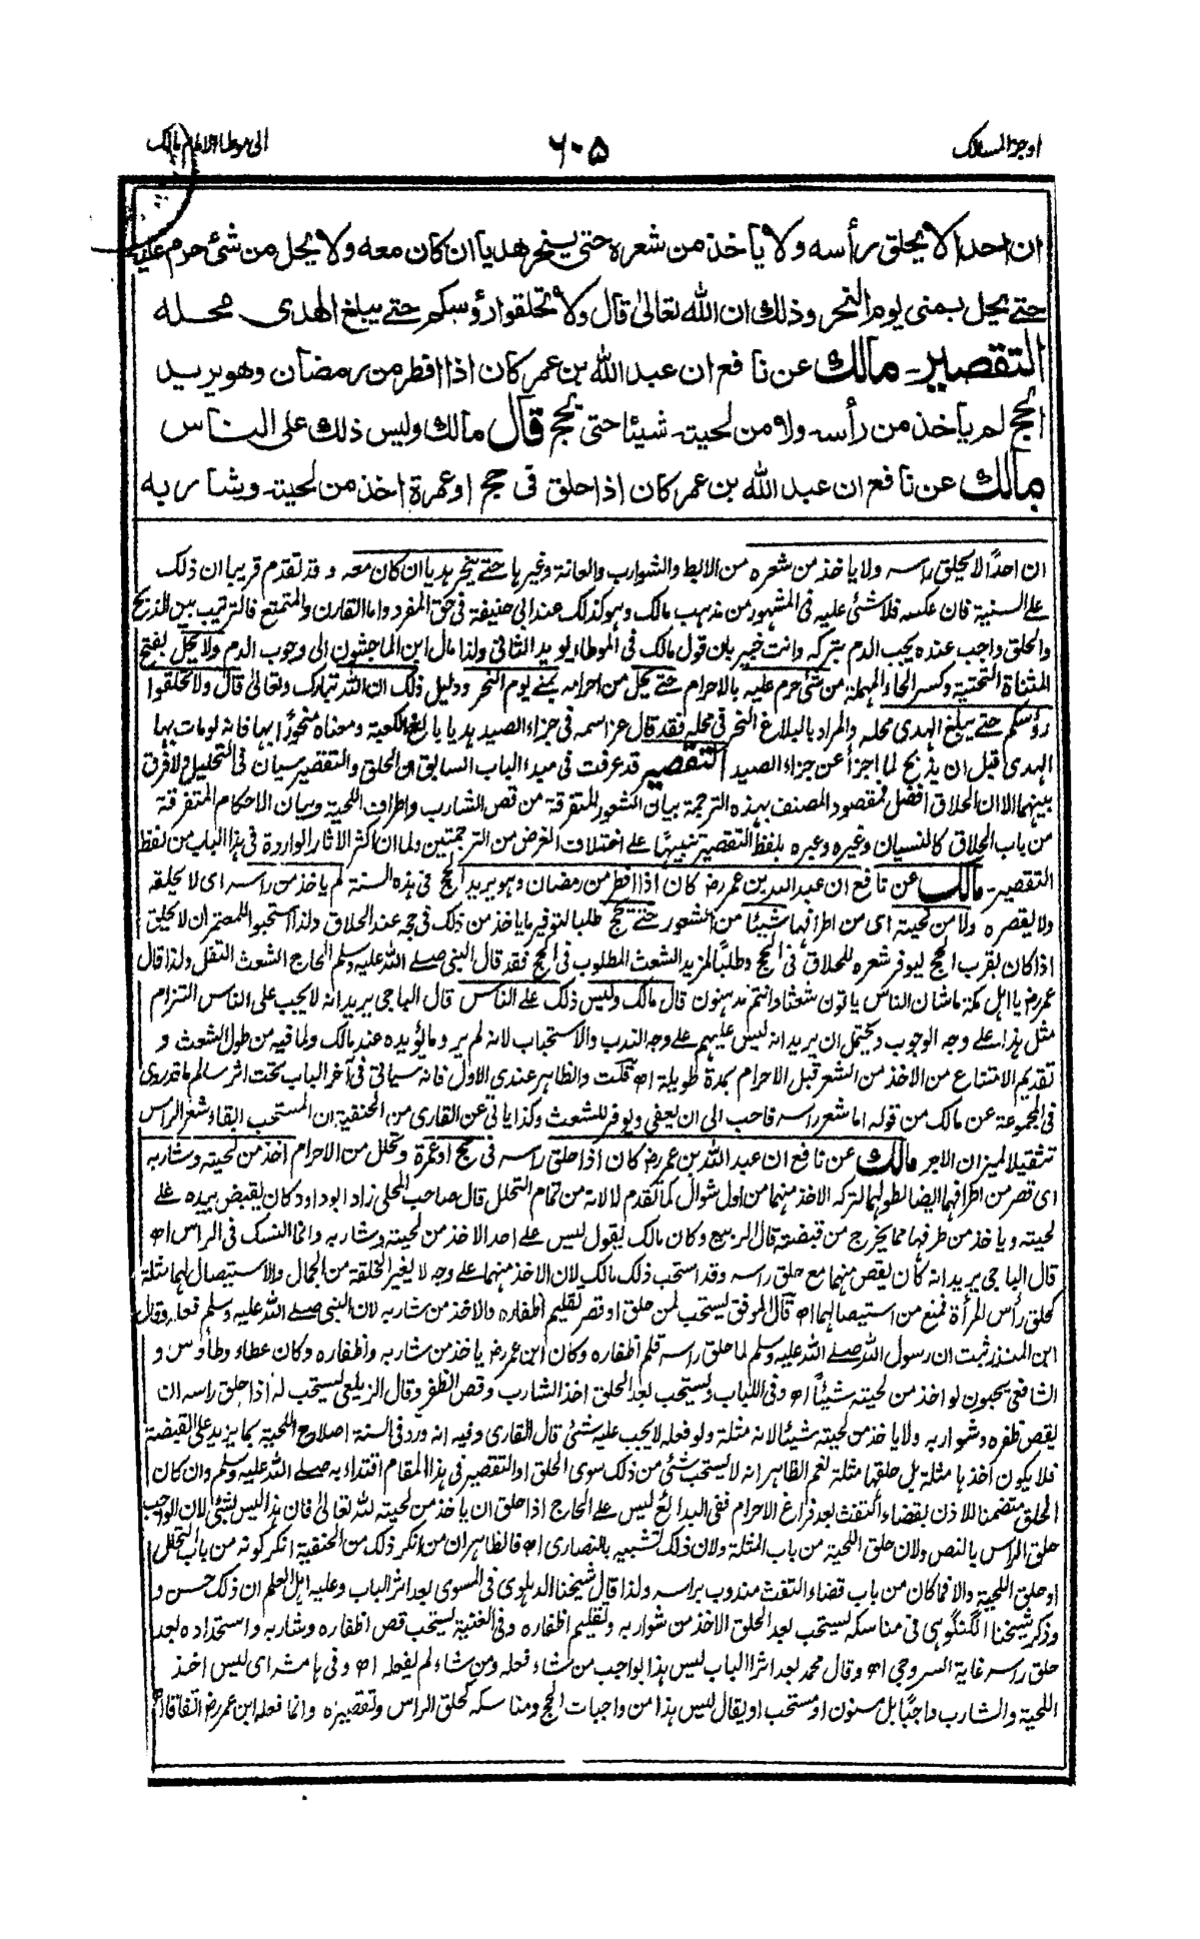 اوجز المسالك
٦٠٥
الى موطا الامام مالك
ان احدا لا يحلق رأسه ولا يأخذ من شعره حتى ينحر هديا ان كان معه ولا يحل من شئ حرم عليه
حتے يحل بمنى يوم النحر وذلك ان الله تعالىٰ قال ولا تحلقوا رؤسكم حتے يبلغ الهدى محله
التقصير۔ مالك عن نافع ان عبد الله بن عمر كان اذا افطر من رمضان وهو يريد
الحج لم يأخذ من رأسه ولا من لحيته شيئا حتى يحج قال مالك وليس ذلك على الناس
مالك عن نافع ان عبد الله بن عمر كان اذا حلق فى حج او عمرة اخذ من لحيته وشاربه
ان احداً لا يحلق راسه ولا ياخذ من شعره من الابط والشوارب والعانة وغيرها حتے ينحر هديا ان كان معه وقد تقدم قريبا ان ذلك
علے السنية فان عكسه فلا شئ عليه فى المشهور من مذهب مالك وهو كذلك عند ابى حنيفة فى حق المفرد واما القارن والمتمتع فالترتيب بين الذبح
والحلق واجب عنده يجب الدم بتركه وانت خبير بان قول مالك فى الموطاء يويد الثانى ولذا مال ابن الماجشون الى وجوب الدم ولا يحل بفتح
المثناة التحتية وكسر الحاء المهملة من شئ حرم عليه بالاحرام حتے يحل من احرامه بمنے يوم النحر ودليل ذلك ان الله تبارك وتعالىٰ قال ولا تحلقوا
رؤسكم حتے يبلغ الهدى محله والمراد بالبلاغ النحر فى محله فقد قال عز اسمه فى جزاء الصيد هديا بالغ الكعبة ومعناه منحورًا بها فانه لو مات بها
الهدى قبل ان يذبح لما اجزأ عن جزاء الصيد التقصير قد عرفت فى مبدء الباب السابق ان الحلق والتقصير سيان فى التحليل ولا فرق
بينهما الا ان الحلاق افضل فمقصود المصنف بهذه الترجمة بيان الشعور المتفرقة من قص الشارب واطراف اللحية وبيان الاحكام المتفرقة
من باب الحلاق كالنسيان وغيره وعبره بلفظ التقصير تنبيها علے اختلاف الغرض من الترجمتين ولما ان اكثر الآثار الواردة فى هذا الباب من لفظ
التقصير۔ مالك عن نافع ان عبد الله بن عمر رض كان اذا افطر من رمضان وهو يريد الحج فى هذه السنة لم ياخذ من راسه اى لا يحلقه
ولا يقصره ولا من لحيته اى من اطرافها شيئا من الشعور حتے يحج طلبا لتوفير ما ياخذ من ذلك فى حجه عند الحلاق ولذا استحبوا للمعتمر ان لا يحلق
اذا كان بقرب الحج ليوفر شعره للحلاق فى الحج وطلبًا لمزيد الشعث المطلوب فى الحج فقد قال النبى صلے الله عليه وسلم الحاج الشعث التفل ولذا قال
عمر رض يا اهل مكة ما شان الناس ياتون شعثا وانتم مدهنون قال مالك وليس ذلك علے الناس قال الباجى يريد انه لا يجب على الناس التزام
مثل هذا علے وجه الوجوب ويحتمل ان يريد انه ليس عليهم علے وجه الندب والاستحباب لانه لم ير وما يؤيده عند مالك ولما فيه من طول الشعث و
تقديم الامتناع من الاخذ من الشعر قبل الاحرام بمدة طويلة اھ قلت والظاهر عندى الاول فانه سياتى فى آخر الباب تحت اثر سالم ما قد روى
فى المجموعة عن مالك من قوله اما شعر راسه فاحب الى ان يعفى ويوفر للشعث وكذا ياتى عن القارى من الحنفية ان المستحب ابقاء شعر الراس
تثقيلا لميزان الاجر مالك عن نافع ان عبد الله بن عمر رض كان اذا حلق راسه فى حج او عمرة وتحلل من الاحرام اخذ من لحيته وشاربه
اى قصر من اطرافهما ايضا لطولهما لتركه الاخذ منهما من اول شوال كما تقدم لا لانه من تمام التحلل قال صاحب المحلى زاد ابو داود كان يقبض بيده علے
لحيته وياخذ من طرفها مما يخرج من قبضته قال الربيع وكان مالك يقول ليس علے احد الاخذ من لحيته وشاربه وانما النسك فى الراس اھ
قال الباجى يريد انه كان يقص منهما مع حلق راسه وقد استحب ذلك مالك لان الاخذ منهما علے وجه لا يغير الخلقة من الجمال والاستيصال لهما مثلة
كحلق رأس المرأة فمنع من استيصالهما اھ قال الموفق يستحب لمن حلق او قصر تقليم اظفاره والاخذ من شاربه لان النبى صلے الله عليه وسلم فعله وقال
ابن المنذر ثبت ان رسول الله صلے الله عليه وسلم لما حلق راسه قلم اظفاره وكان ابن عمر رض ياخذ من شاربه واظفاره وكان عطاء وطاؤس و
الشافعى يحبون لو اخذ من لحيته شيئاً اھ وفى اللباب ويستحب بعد الحلق اخذ الشارب وقص الظفر وقال الزيلعى يستحب له اذا حلق راسه ان
يقص ظفره وشواربه ولا ياخذ من لحيته شيئا لانه مثلة ولو فعله لا يجب عليه شئ قال القارى وفيه انه ورد فى السنة اصلاح اللحية بما يزيد على القبضة
فلا يكون اخذها مثلة بل حلقها مثلة نعم الظاهر انه لا يستحب شئ من ذلك سوى الحلق او التقصير فى هذا المقام اقتداء به صلے الله عليه وسلم وان كان
الحلق متضمنا للاذن بقضاء التفث بعد فراغ الاحرام ففى البدائع ليس علے الحاج اذا حلق ان ياخذ من لحيته لله تعالىٰ فان هذا ليس بشئ لان الواجب
حلق الراس بالنص ولان حلق اللحية من باب المثلة ولان ذلك تشبيه بالنصارى اھ فالظاهر ان من انكر ذلك من الحنفية انكر كونه من باب التحلل
او حلق اللحية والا فما كان من باب قضاء التفث مندوب براسه ولذا قال شيخنا الدهلوى فى المسوى بعد اثر الباب وعليه اهل العلم ان ذلك حسن و
وذكر شيخنا الگنگوهى فى مناسكه يستحب بعد الحلق الاخذ من شواربه وتقليم اظفاره وفى الغنية يستحب قص اظفاره وشاربه واستحداده بعد
حلق راسه غاية السروجى اھ وقال محمد بعد اثر الباب ليس هذا بواجب من شاء فعله ومن شاء لم يفعله اھ وفى هامشه اى ليس اخذ
اللحية والشارب واجبًا بل مسنون او مستحب او يقال ليس هذا من واجبات الحج ومناسكه كحلق الراس وتقصيره وانما فعله ابن عمر رض اتفاقا اھ